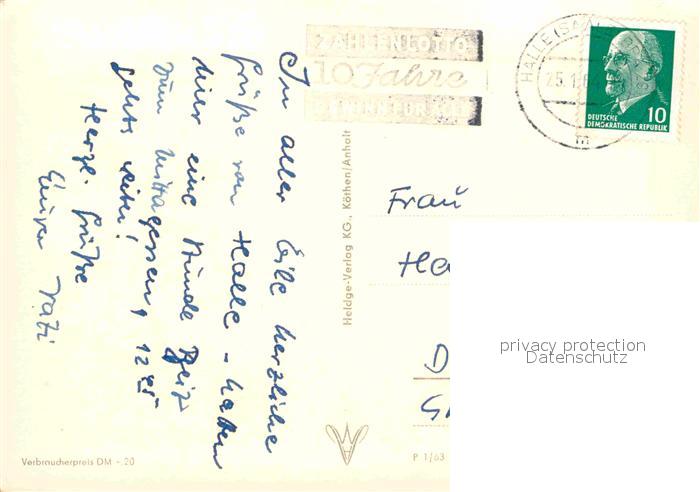 ZAHLENLOTTO
10 Jahre
HALLE (SAALE)
25.1.64
DEUTSCHE
DEMOKRATISCHE REPUBLIK
10
In aller Eile herzliche
Grüße von Halle - haben
hier eine Stunde Zeit
zum Mittagessen, 12 45
gehts weiter!
Herzl. Grüße
Euer Vati
Heldge-Verlag KG., Köthen/Anhalt
Frau
Ha
D
privacy protection
Datenschutz
Verbraucherpreis DM -.20
P 1/63